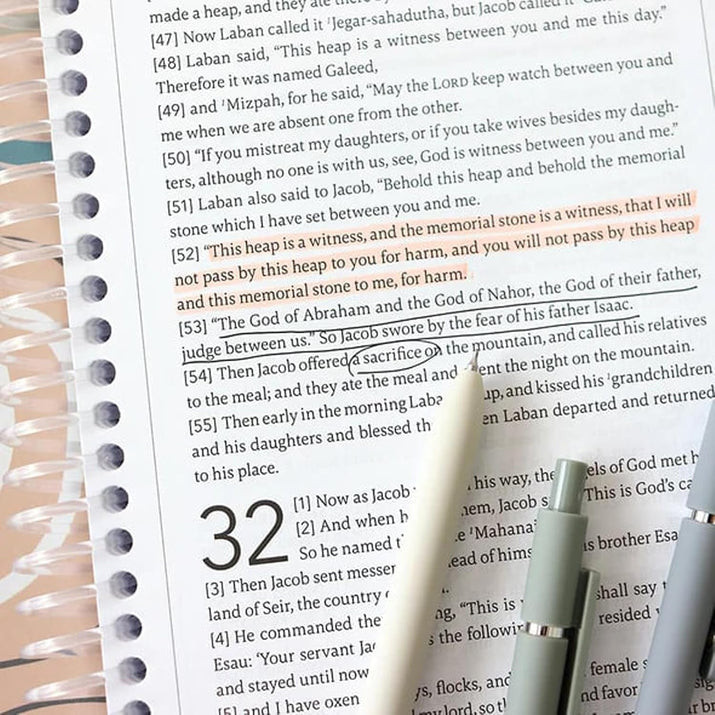 made a heap, and they ate
[47] Now Laban called it ¹Jegar-sahadutha, but Jacob called it
[48] Laban said, “This heap is a witness between you and me this day.”
Therefore it was named Galeed,
[49] and ¹Mizpah, for he said, “May the LORD keep watch between you and
me when we are absent one from the other.
[50] “If you mistreat my daughters, or if you take wives besides my daugh-
ters, although no one is with us, see, God is witness between you and me.”
[51] Laban also said to Jacob, “Behold this heap and behold the memorial
stone which I have set between you and me.
[52] “This heap is a witness, and the memorial stone is a witness, that I will
not pass by this heap to you for harm, and you will not pass by this heap
and this memorial stone to me, for harm.
[53] “The God of Abraham and the God of Nahor, the God of their father,
judge between us.” So Jacob swore by the fear of his father Isaac.
[54] Then Jacob offered a sacrifice on the mountain, and called his relatives
to the meal; and they ate the meal and ent the night on the mountain.
[55] Then early in the morning Laba up, and kissed his ¹grandchildren
and his daughters and blessed th en Laban departed and returned
to his place.
32 [1] Now as Jacob his way, the els of God met h
[2] And when h hem, Jacob s This is God's ca
So he named t e ¹Mahana
[3] Then Jacob sent messen ead of hims is brother Esa
land of Seir, the country
[4] He commanded the ng, “This is shall say t
Esau: ‘Your servant Jac s the followi resided
and stayed until now
[5] and I have oxen ys, flocks, and female s
my lord, so t nd favor sig